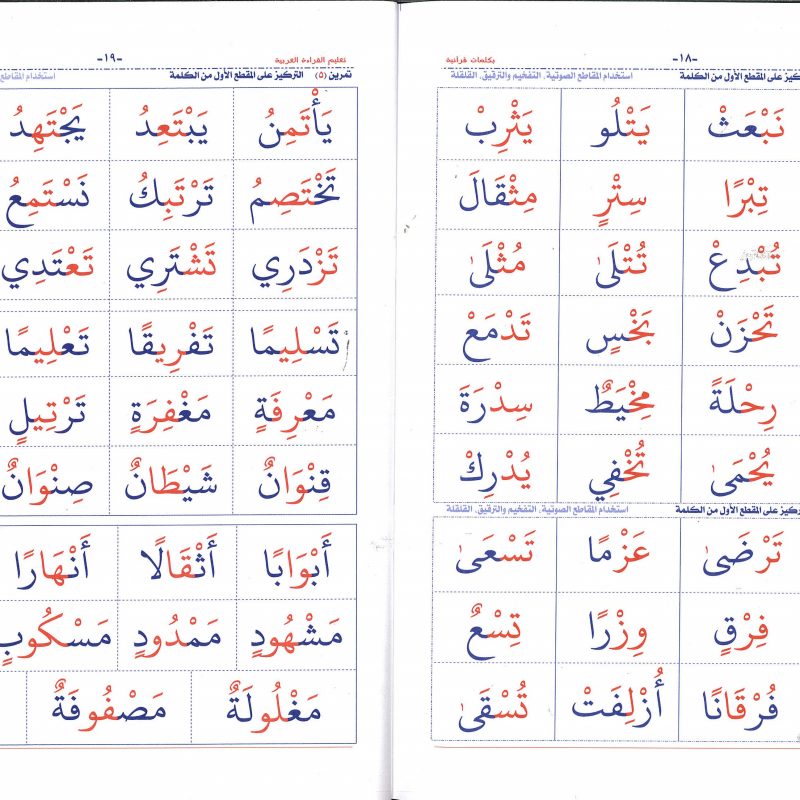 -١٨-
بكلمات قرآنية
التركيز على المقطع الأول من الكلمة
استخدام المقاطع الصوتية، التفخيم والترقيق، القلقلة
نَبْعَثْ يَتْلُو يَثْرِبْ
تِبْرًا سِتْرٍ مِثْقَالَ
تُبْدِعْ تُتْلَىٰ مُثْلَىٰ
تَحْزَنْ بَخْسٍ تَدْمَعْ
رِحْلَةً مِخْيَطٌ سِدْرَةَ
يُحْمَىٰ تُخْفِي يُدْرِكْ
التركيز على المقطع الأول من الكلمة
استخدام المقاطع الصوتية، التفخيم والترقيق، القلقلة
تَرْضَىٰ عَزْمًا تَسْعَىٰ
فِرْقٍ وِزْرًا تِسْعٌ
فُرْقَانًا أُزْلِفَتْ تُسْقَىٰ
-١٩-
تعليم القراءة العربية
تمرين (٥) التركيز على المقطع الأول من الكلمة
استخدام المقاطع
يَأْتَمِنُ يَبْتَعِدُ يَجْتَهِدُ
تَخْتَصِمُ تَرْتَبِكُ نَسْتَمِعُ
تَزْدَرِي تَشْتَرِي تَعْتَدِي
تَسْلِيمًا تَفْرِيقًا تَعْلِيمًا
مَعْرِفَةٍ مَغْفِرَةٍ تَرْتِيلٍ
قِنْوَانٌ شَيْطَانٌ صِنْوَانٌ
أَبْوَابًا أَثْقَالًا أَنْهَارًا
مَشْهُودٍ مَمْدُودٍ مَسْكُوبٍ
مَغْلُولَةٌ مَصْفُوفَةٌ